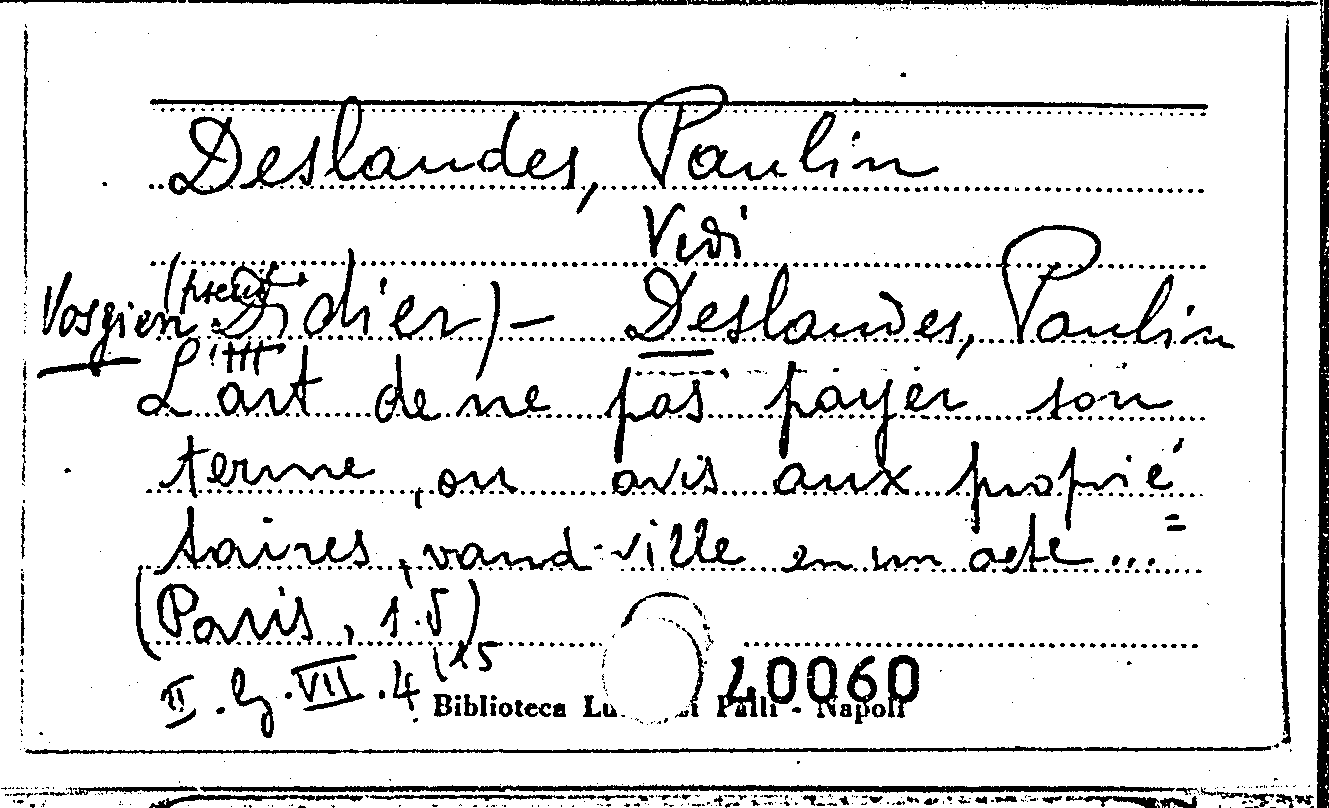 Deslandes, Paulin
Vedi
Vosgien (pseud. Didier) - Deslandes, Paulin
L'art de ne pas payer son
terme, ou avis aux proprié=
taires, vaud-ville en un acte...
(Paris, s.d)
II. G. VII. 4 (15
Biblioteca Palli - Napoli
L0060